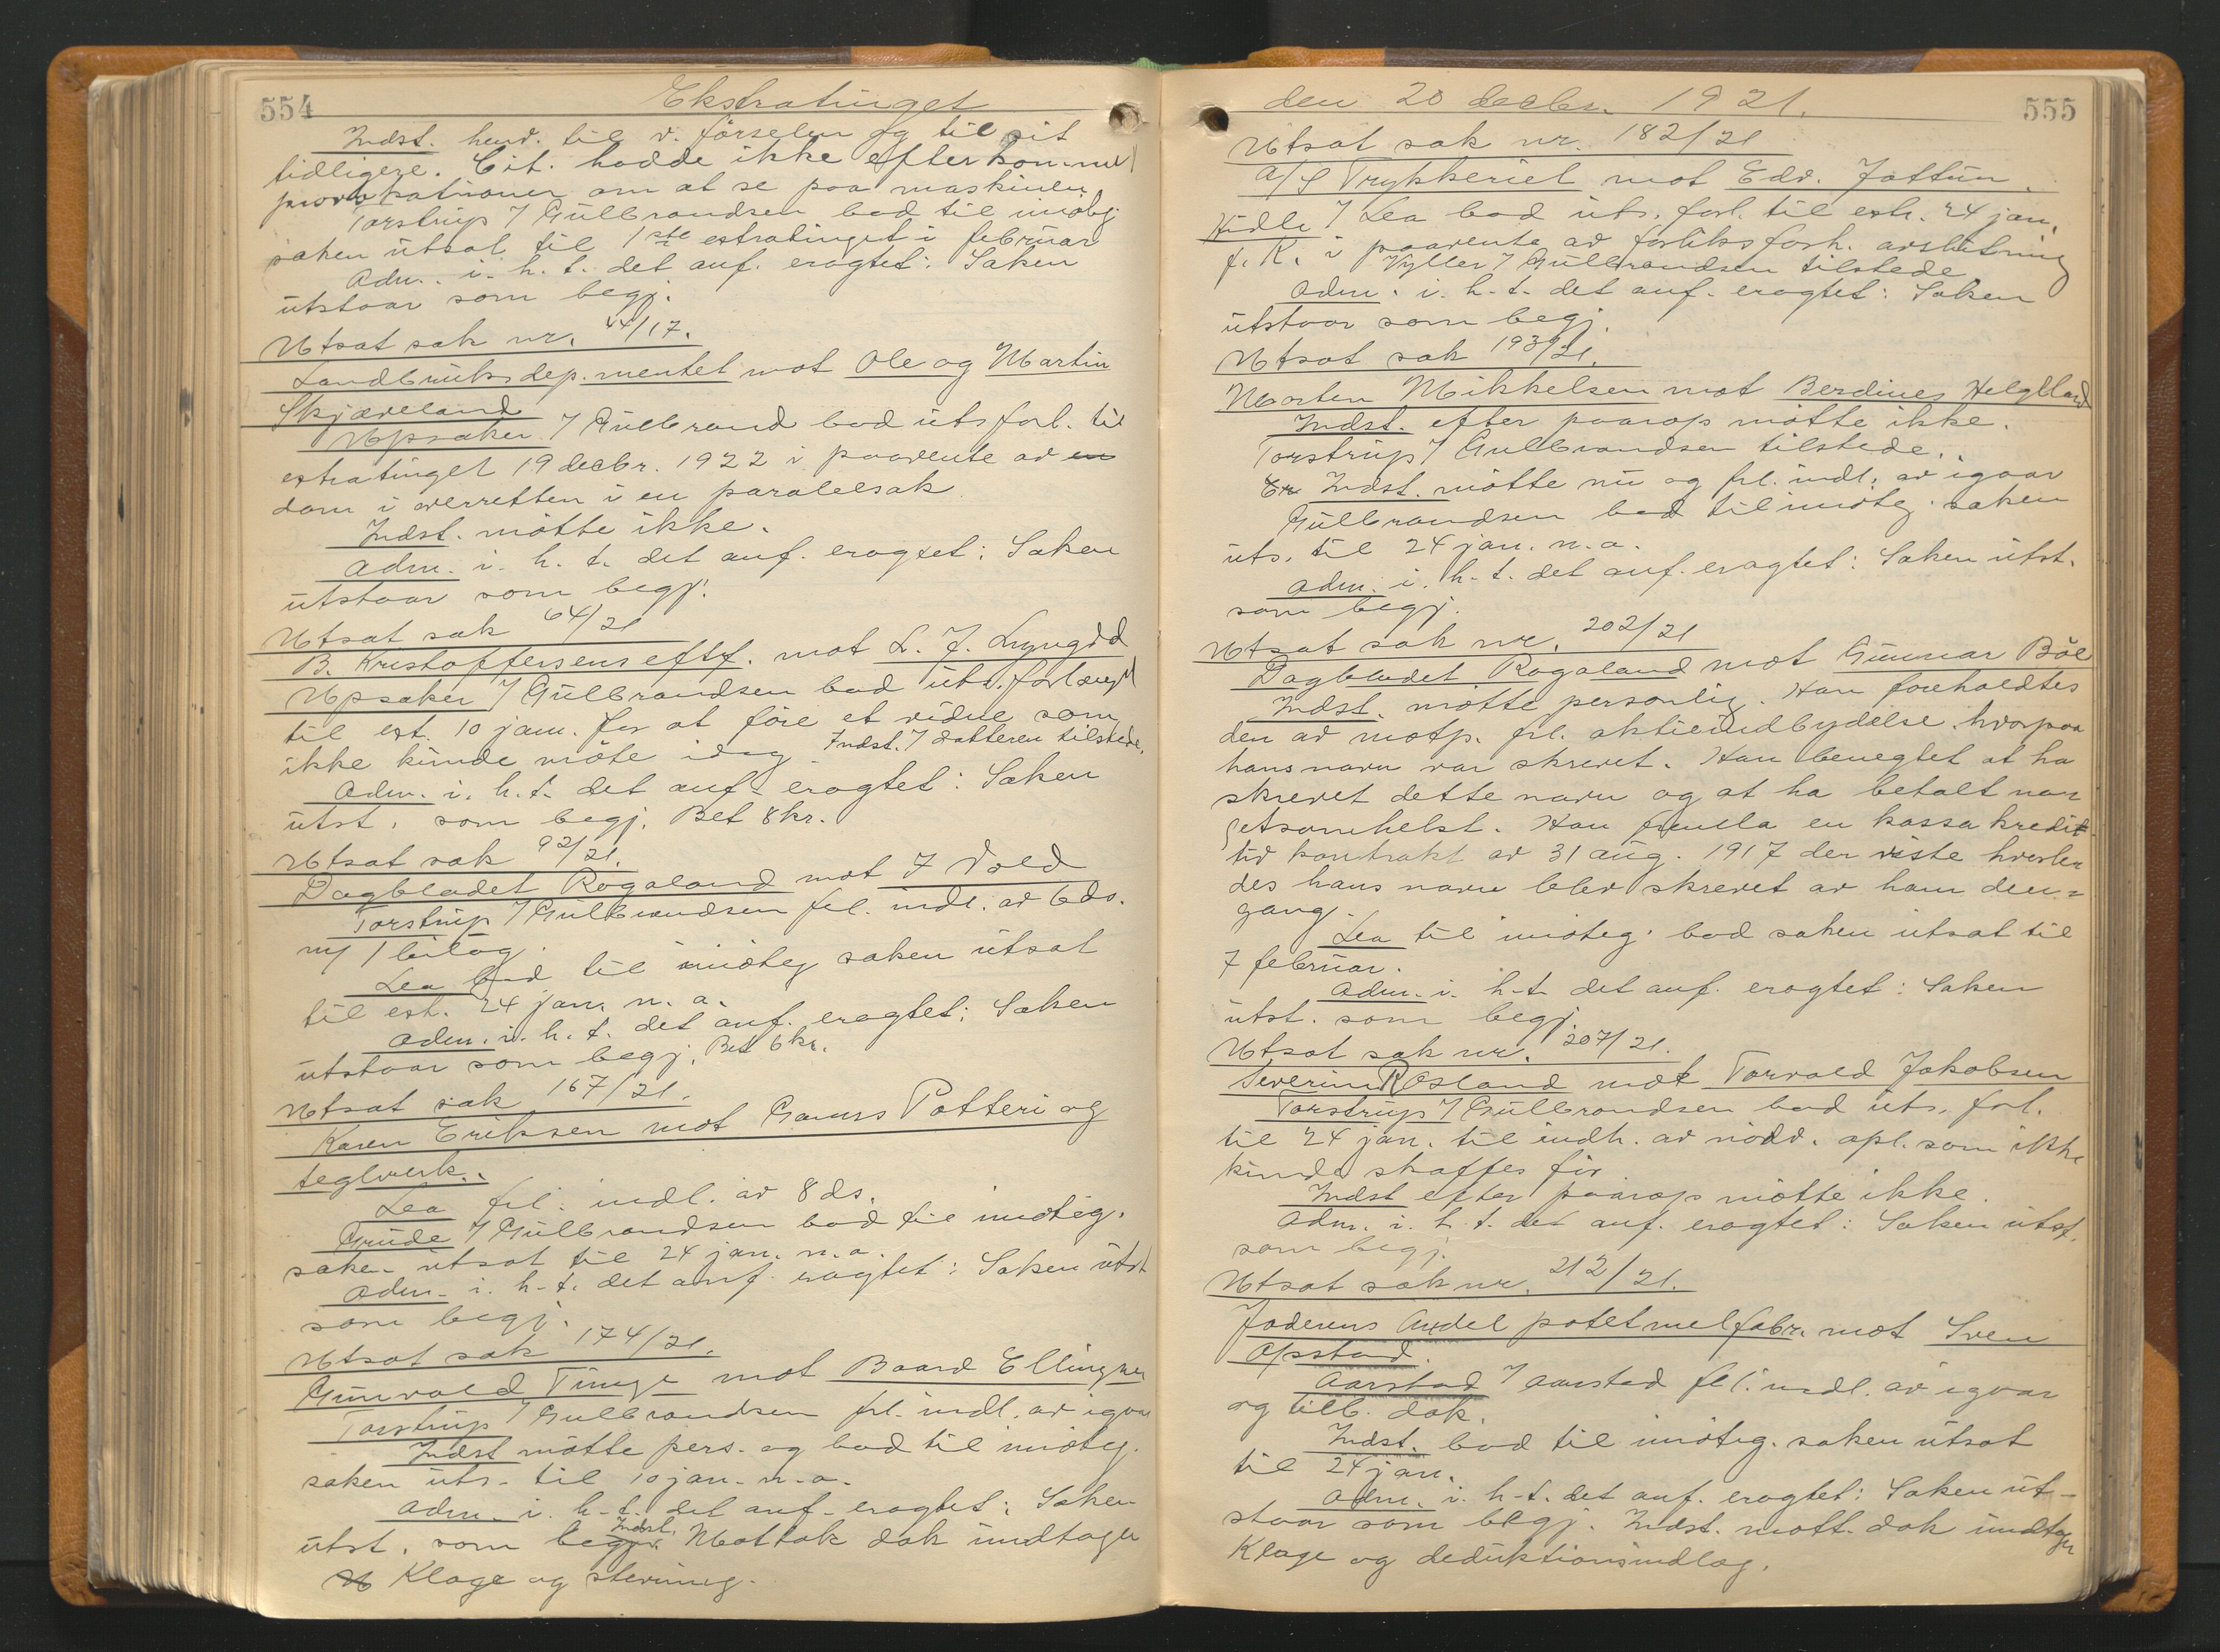 554
Ekstratinget
Indst. henv. til v. förselen og til sit
tidligere. Cit. hadde ikke efterkommet
provokationer om at se paa maskinen.
Torstrup / Gulbrandsen bad til imöteg.
saken utsat til 1ste extratinget i februar
Adm. i. h. t. det anf. eragtet: Saken
utstaar som begj.
Utsat sak nr. 44/17.
Landbruksdep.mentet mot Ole og Martin
Skjæveland
Upsaker / Gulbrand bad uts forl. til
extratinget 19 decbr. 1922 i paavente av en
dom i overretten i en paralelsak.
Indst. mötte ikke.
Adm. i. h. t. det anf. eragtet: Saken
utstaar som begj.
Utsat sak 64/21
B. Kristoffersens eftf. mot L. J.
Upsaker / Gulbrandsen bad uts. forlænget
til ext. 10 jan. for at före et vidne som
ikke kunde möte idag. Indst. / datteren tilstede.
Adm. i. h. t. det anf. eragtet: Saken
utst. som begj. Bet 8 kr.
Utsat sak 92/21.
Dagbladet Rogaland mot F Vold
Torstrup / Gulbrandsen frl. indl. av 6 ds.
m/ 1 bilag.
Lea bad til imöteg saken utsat
til ext. 24 jan. n. a.
Adm. i. h. t. det anf. eragtet: Saken
utstaar som begj. Bet 6 kr.
Utsat sak 167/21.
Karen Eriksen mot Ganns Potteri og
teglverk.
Lea frl. indl. av 8 ds.
Grude / Gulbrandsen bad til imöteg.
saken utsat til 24 jan. n. a.
Adm. i. h. t. det anf. eragtet: Saken utst
som begj.
Utsat sak 174/21.
Gunvald Tunge mot Baard Ellingsen
Torstrup / Gulbrandsen frl. indl. av igaar
Indst mötte pers. og bad til imöteg.
saken uts. til 10 jan. n. a.
Adm. i. h. t. det anf. eragtet: Saken
utst. som begj. Indst. Mottok dok undtagen
Klage og stevning.
den 20 decbr. 1921.
555
Utsat sak nr. 182/21
A/S Trykkeriet mot Edv. Jattun.
Hidle / Lea bad uts. forl. til extr. 24 jan.
f. K. i paavente av forliksforh. avslutning
Vyller / Gulbrandsen tilstede
Adm. i. h. t. det anf. eragtet: Saken
utstaar som begj.
Utsat sak 193/21.
Morten Mikkelsen mot Berdines Helgeland
Indst. efter paarop mötte ikke.
Torstrup / Gulbrandsen tilstede.
Indst. mötte nu og frl. indl. av igaar
Gulbrandsen bad til imöteg. saken
uts. til 24 jan. n. a.
Adm. i. h. t. det anf. eragtet: Saken utst.
som begj.
Utsat sak nr. 202/21
Dagbladet Rogaland mot Gunnar Böe
Indst. mötte personlig. Han foreholdtes
den av motp. frl. aktieindbydelse hvorpaa
hans navn var skrevet. Han benegtet at ha
skrevet dette navn og at ha betalt noget
getsomhelst. Han fremla en kassakredit-
tiv kontrakt av 31 aug. 1917 der viste hvorle
des hans navn blev skrevet av ham den=
gang.
Lea til imöteg. bad saken utsat til
7 februar.
Adm. i. h. t. det anf. eragtet: Saken
utst. som begj.
Utsat sak nr. 207/21.
Severin Rosland mot Torvald Jakobsen
Torstrup / Gulbrandsen bad uts. forl.
til 24 jan. til indh. av nödv. opl. som ikke
kunde skaffes för
Indst efter paarop mötte ikke.
Adm. i. h. t. det anf. eragtet: Saken utst.
som begj.
Utsat sak nr. 212/21.
Jaderens Andel potetmelfabr. mot Sven
Opstad.
Aarstad / Aarstad frl. indl. av igaar
og tilb. dok.
Indst. bad til imöteg. saken utsat
til 24 jan.
Adm. i. h. t. det anf. eragtet: Saken ut-
staar som begj. Indst. mott. dok undtagen
Klage og deduktionsindlæg.